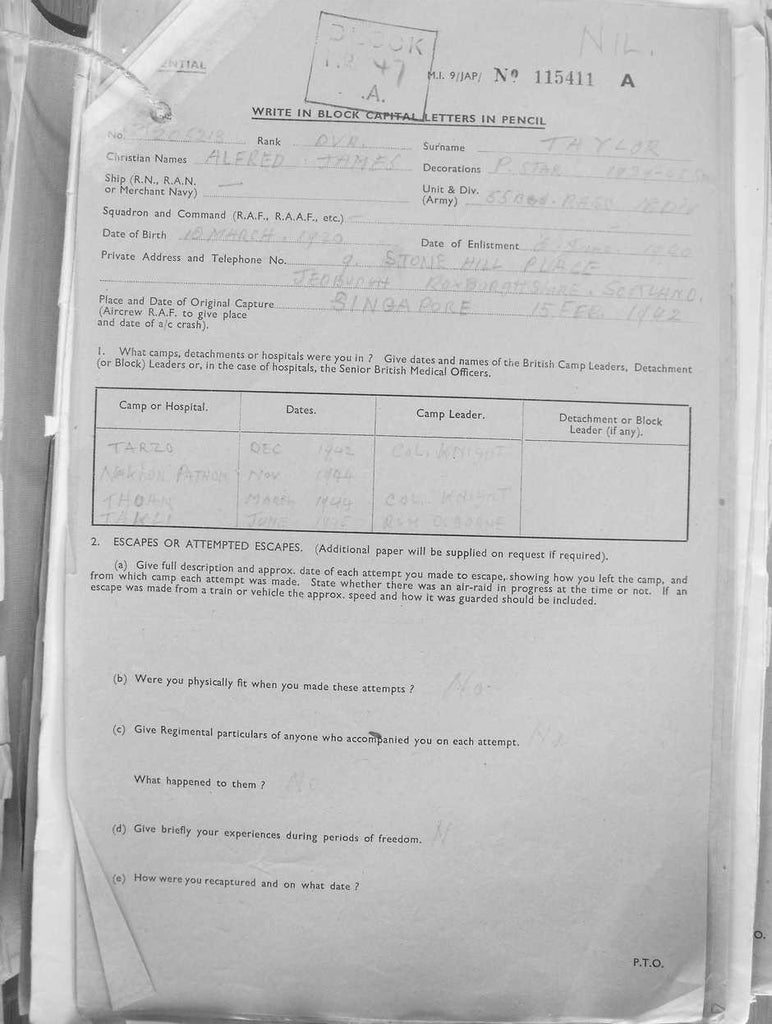 NIL.
BLOCK
47
.A.
NTIAL
M.I. 9/JAP/ Nº 115411 A
WRITE IN BLOCK CAPITAL LETTERS IN PENCIL
No. Rank DVR. Surname TAYLOR
Christian Names ALFRED JAMES Decorations P. STAR
Ship (R.N., R.A.N. or Merchant Navy) — Unit & Div. (Army)
Squadron and Command (R.A.F., R.A.A.F., etc.) —
Date of Birth 10 MARCH. 1920 Date of Enlistment 1940
Private Address and Telephone No. 9. STONE HILL PLACE
JEDBURGH ROXBURGHSHIRE. SCOTLAND.
Place and Date of Original Capture SINGAPORE 15 FEB. 1942
(Aircrew R.A.F. to give place
and date of a/c crash).
1. What camps, detachments or hospitals were you in ? Give dates and names of the British Camp Leaders, Detachment
(or Block) Leaders or, in the case of hospitals, the Senior British Medical Officers.
Camp or Hospital. Dates. Camp Leader. Detachment or Block Leader (if any).
TARZO DEC 1942 COL. KNIGHT
NAKHON PATHOM NOV 1944
MARCH 1944 COL. KNIGHT
TAKLI JUNE RSM OSBORNE
2. ESCAPES OR ATTEMPTED ESCAPES. (Additional paper will be supplied on request if required).
(a) Give full description and approx. date of each attempt you made to escape, showing how you left the camp, and
from which camp each attempt was made. State whether there was an air-raid in progress at the time or not. If an
escape was made from a train or vehicle the approx. speed and how it was guarded should be included.
(b) Were you physically fit when you made these attempts ? No.
(c) Give Regimental particulars of anyone who accompanied you on each attempt. No
What happened to them ? No
(d) Give briefly your experiences during periods of freedom. N
(e) How were you recaptured and on what date ?
P.T.O.
O.